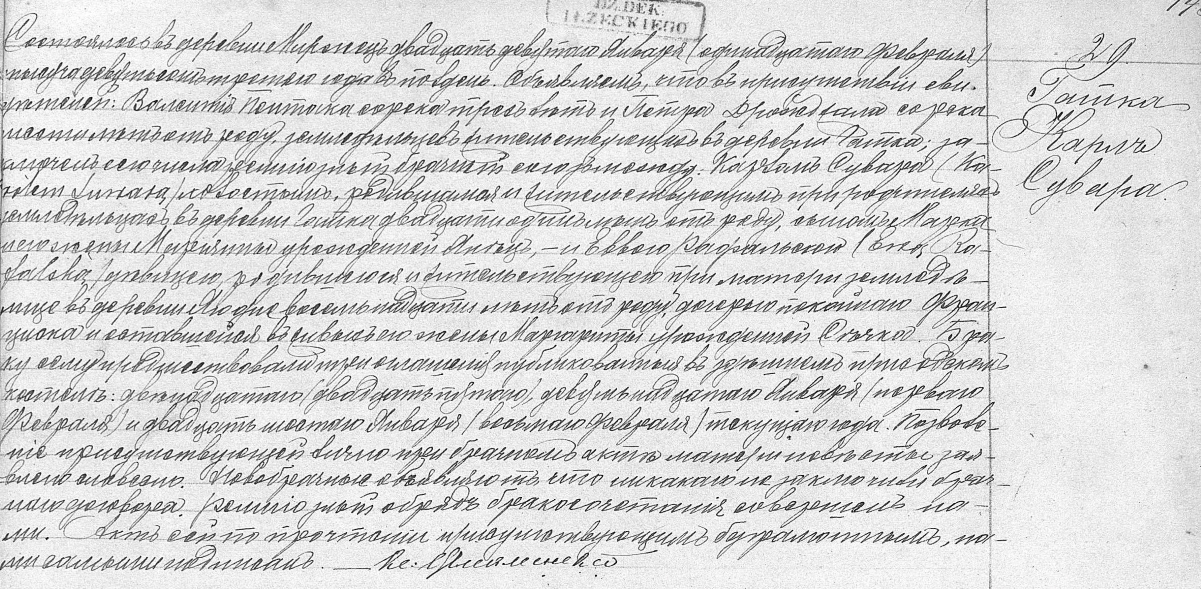 DZ.DEK.
IŁŻECKIEGO
29.
Гатка
Кароль
Сувара.
Состоялось въ деревни Миржецъ двадцать девятаго Января (одинадцатаго Февраля)
тысяча девятьсотъ третьяго года въ полдень. Объявляемъ, что въ присутствіи сви-
дѣтелей: Валентія сорока трехъ лѣтъ и Петра сорока
лѣтъ отъ роду, земледѣльцевъ жительствующихъ въ деревни Гатка; за-
ключенъ сего числа религіозный брачный союзъ между Каролемъ Сувара (Ka-
rol Suwara) холостымъ, родившимся и жительствующимъ при родителяхъ
земледѣльцахъ въ деревни Гатка двадцати лѣтъ отъ роду, сыномъ
его жены Маріанны урожденной — и Еввою Рафальскою (Ewa Ra-
falska) дѣвицею, родившеюся и жительствующею при матери земледѣ-
лицѣ въ деревни восемьнадцати лѣтъ отъ роду, дочерью покойнаго Фран-
циска и оставшейся въ живыхъ его жены Маргариты урожденной Сѣяка. Бра-
ку сему предшествовали три оглашенія публикованныя въ здѣшнемъ приходскомъ
костелѣ: двенадцатаго (двадцать пятаго), девятьнадцатаго Января (перваго
Февраля) и двадцать шестаго Января (восьмаго Февраля) текущаго года. Позволе-
ніе присутствующей лично при брачномъ актѣ матери невѣсты зая-
влено словесно. Новобрачные объявляютъ что никакого не заключили брач-
наго договора. Религіозный обрядъ бракосочетанія совершенъ на-
ми. Актъ сей по прочтеніи присутствующимъ безграмотнымъ, на-
ми самыми подписанъ. — Кс.